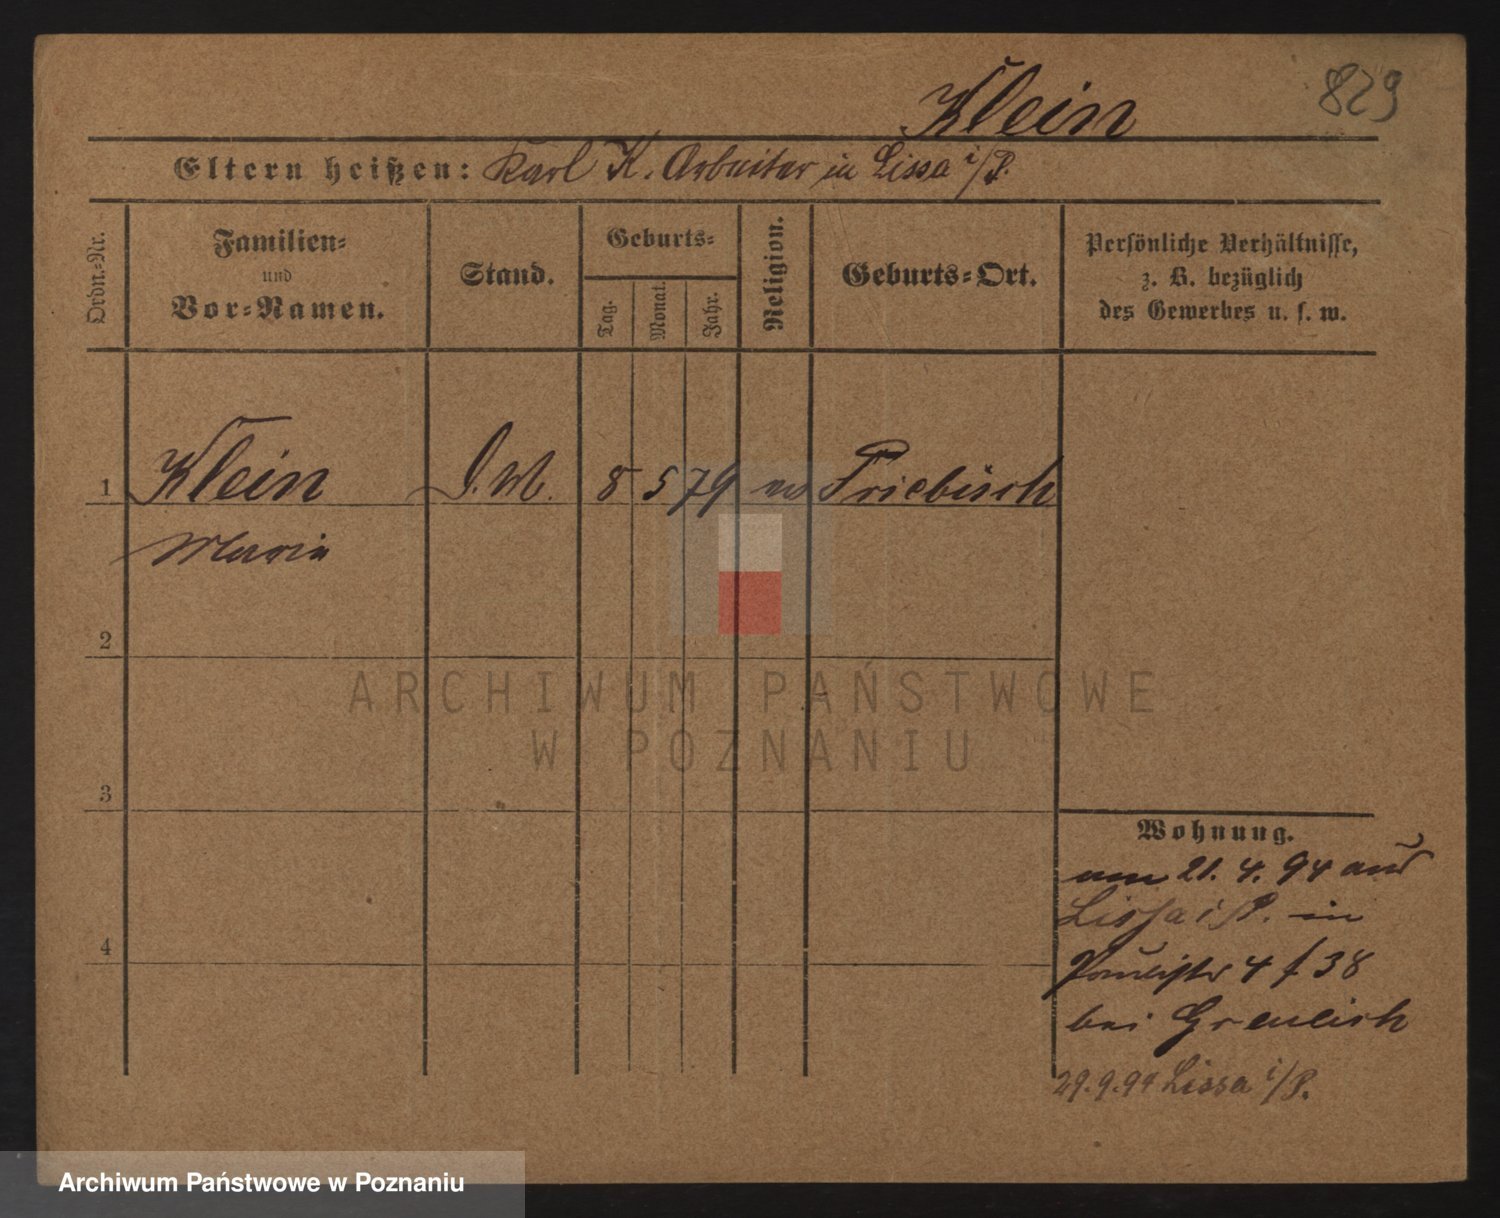 Klein
829
Eltern heißen: Karl K. Arbeiter in Lissa i/P.
Ordn.-Nr.
Familien-
und
Vor-Namen.
Stand.
Geburts-
Tag.
Monat.
Jahr.
Religion.
Geburts-Ort.
Persönliche Verhältnisse,
z. B. bezüglich
des Gewerbes u. s. w.
1 Klein D.M. 8 5 79 Priebisch
Maria
2
3
4
ARCHIWUM PAŃSTWOWE
W POZNANIU
Wohnung.
21. 4. 94 aus
Lissa i/P. in
4 f 38
bei Greulich
29.9.94 Lissa i/P.
Archiwum Państwowe w Poznaniu